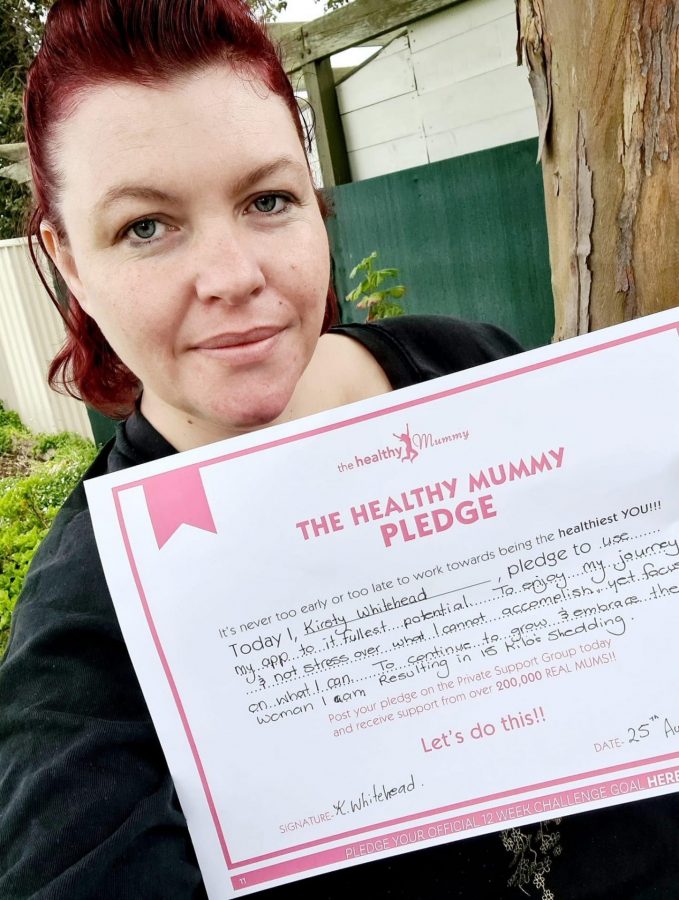 the healthy Mummy
THE HEALTHY MUMMY
PLEDGE
It's never too early or too late to work towards being the healthiest YOU!!!
Today I, Kirsty Whitehead, pledge to use
my app to it fullest potential. To enjoy my journey
& not stress over what I cannot accomplish, yet focus
on what I can. To continue to grow & embrace the
woman I am Resulting in 15 kilos shedding.
Post your pledge on the Private Support Group today
and receive support from over 200,000 REAL MUMS!!
Let's do this!!
SIGNATURE- K. Whitehead.
DATE- 25th Au
PLEDGE YOUR OFFICIAL 12 WEEK CHALLENGE GOAL HERE
11